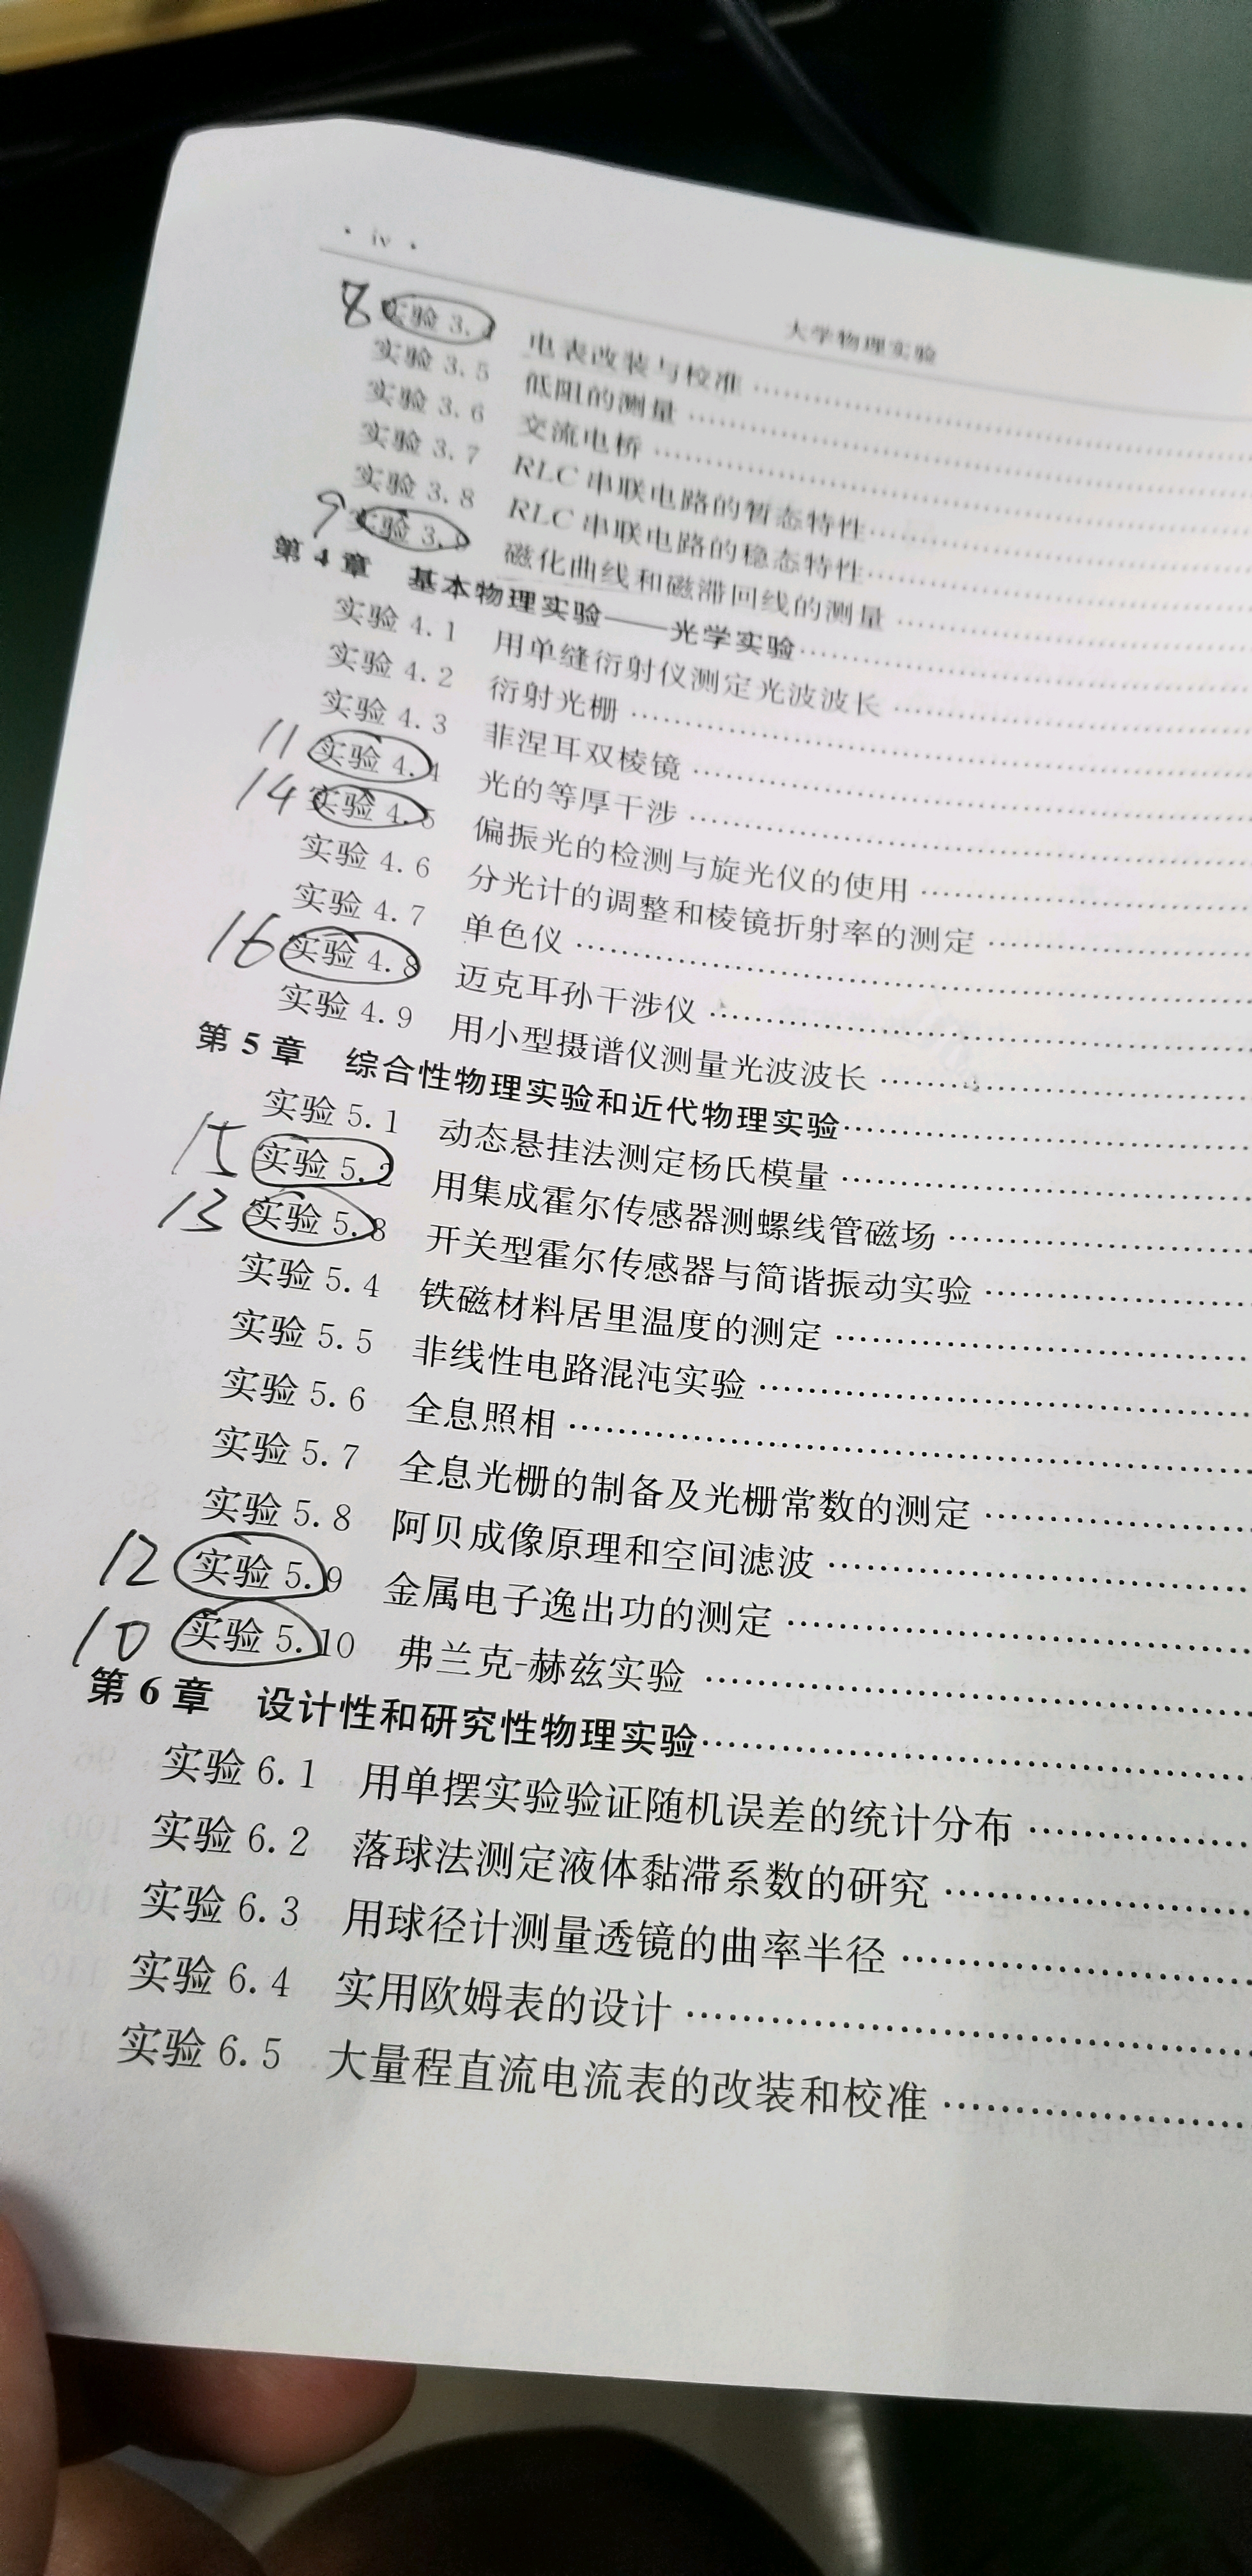 · iv ·
大学物理实验
8 实验 3.4 电表改装与校准
实验 3.5 低阻的测量
实验 3.6 交流电桥
实验 3.7 RLC 串联电路的暂态特性
实验 3.8 RLC 串联电路的稳态特性
9 实验 3.9 磁化曲线和磁滞回线的测量
第 4 章 基本物理实验——光学实验
实验 4.1 用单缝衍射仪测定光波波长
实验 4.2 衍射光栅
实验 4.3 菲涅耳双棱镜
11 实验 4.4 光的等厚干涉
14 实验 4.5 偏振光的检测与旋光仪的使用
实验 4.6 分光计的调整和棱镜折射率的测定
实验 4.7 单色仪
16 实验 4.8 迈克耳孙干涉仪
实验 4.9 用小型摄谱仪测量光波波长
第 5 章 综合性物理实验和近代物理实验
实验 5.1 动态悬挂法测定杨氏模量
15 实验 5.2 用集成霍尔传感器测螺线管磁场
13 实验 5.3 开关型霍尔传感器与简谐振动实验
实验 5.4 铁磁材料居里温度的测定
实验 5.5 非线性电路混沌实验
实验 5.6 全息照相
实验 5.7 全息光栅的制备及光栅常数的测定
实验 5.8 阿贝成像原理和空间滤波
12 实验 5.9 金属电子逸出功的测定
10 实验 5.10 弗兰克-赫兹实验
第 6 章 设计性和研究性物理实验
实验 6.1 用单摆实验验证随机误差的统计分布
实验 6.2 落球法测定液体黏滞系数的研究
实验 6.3 用球径计测量透镜的曲率半径
实验 6.4 实用欧姆表的设计
实验 6.5 大量程直流电流表的改装和校准